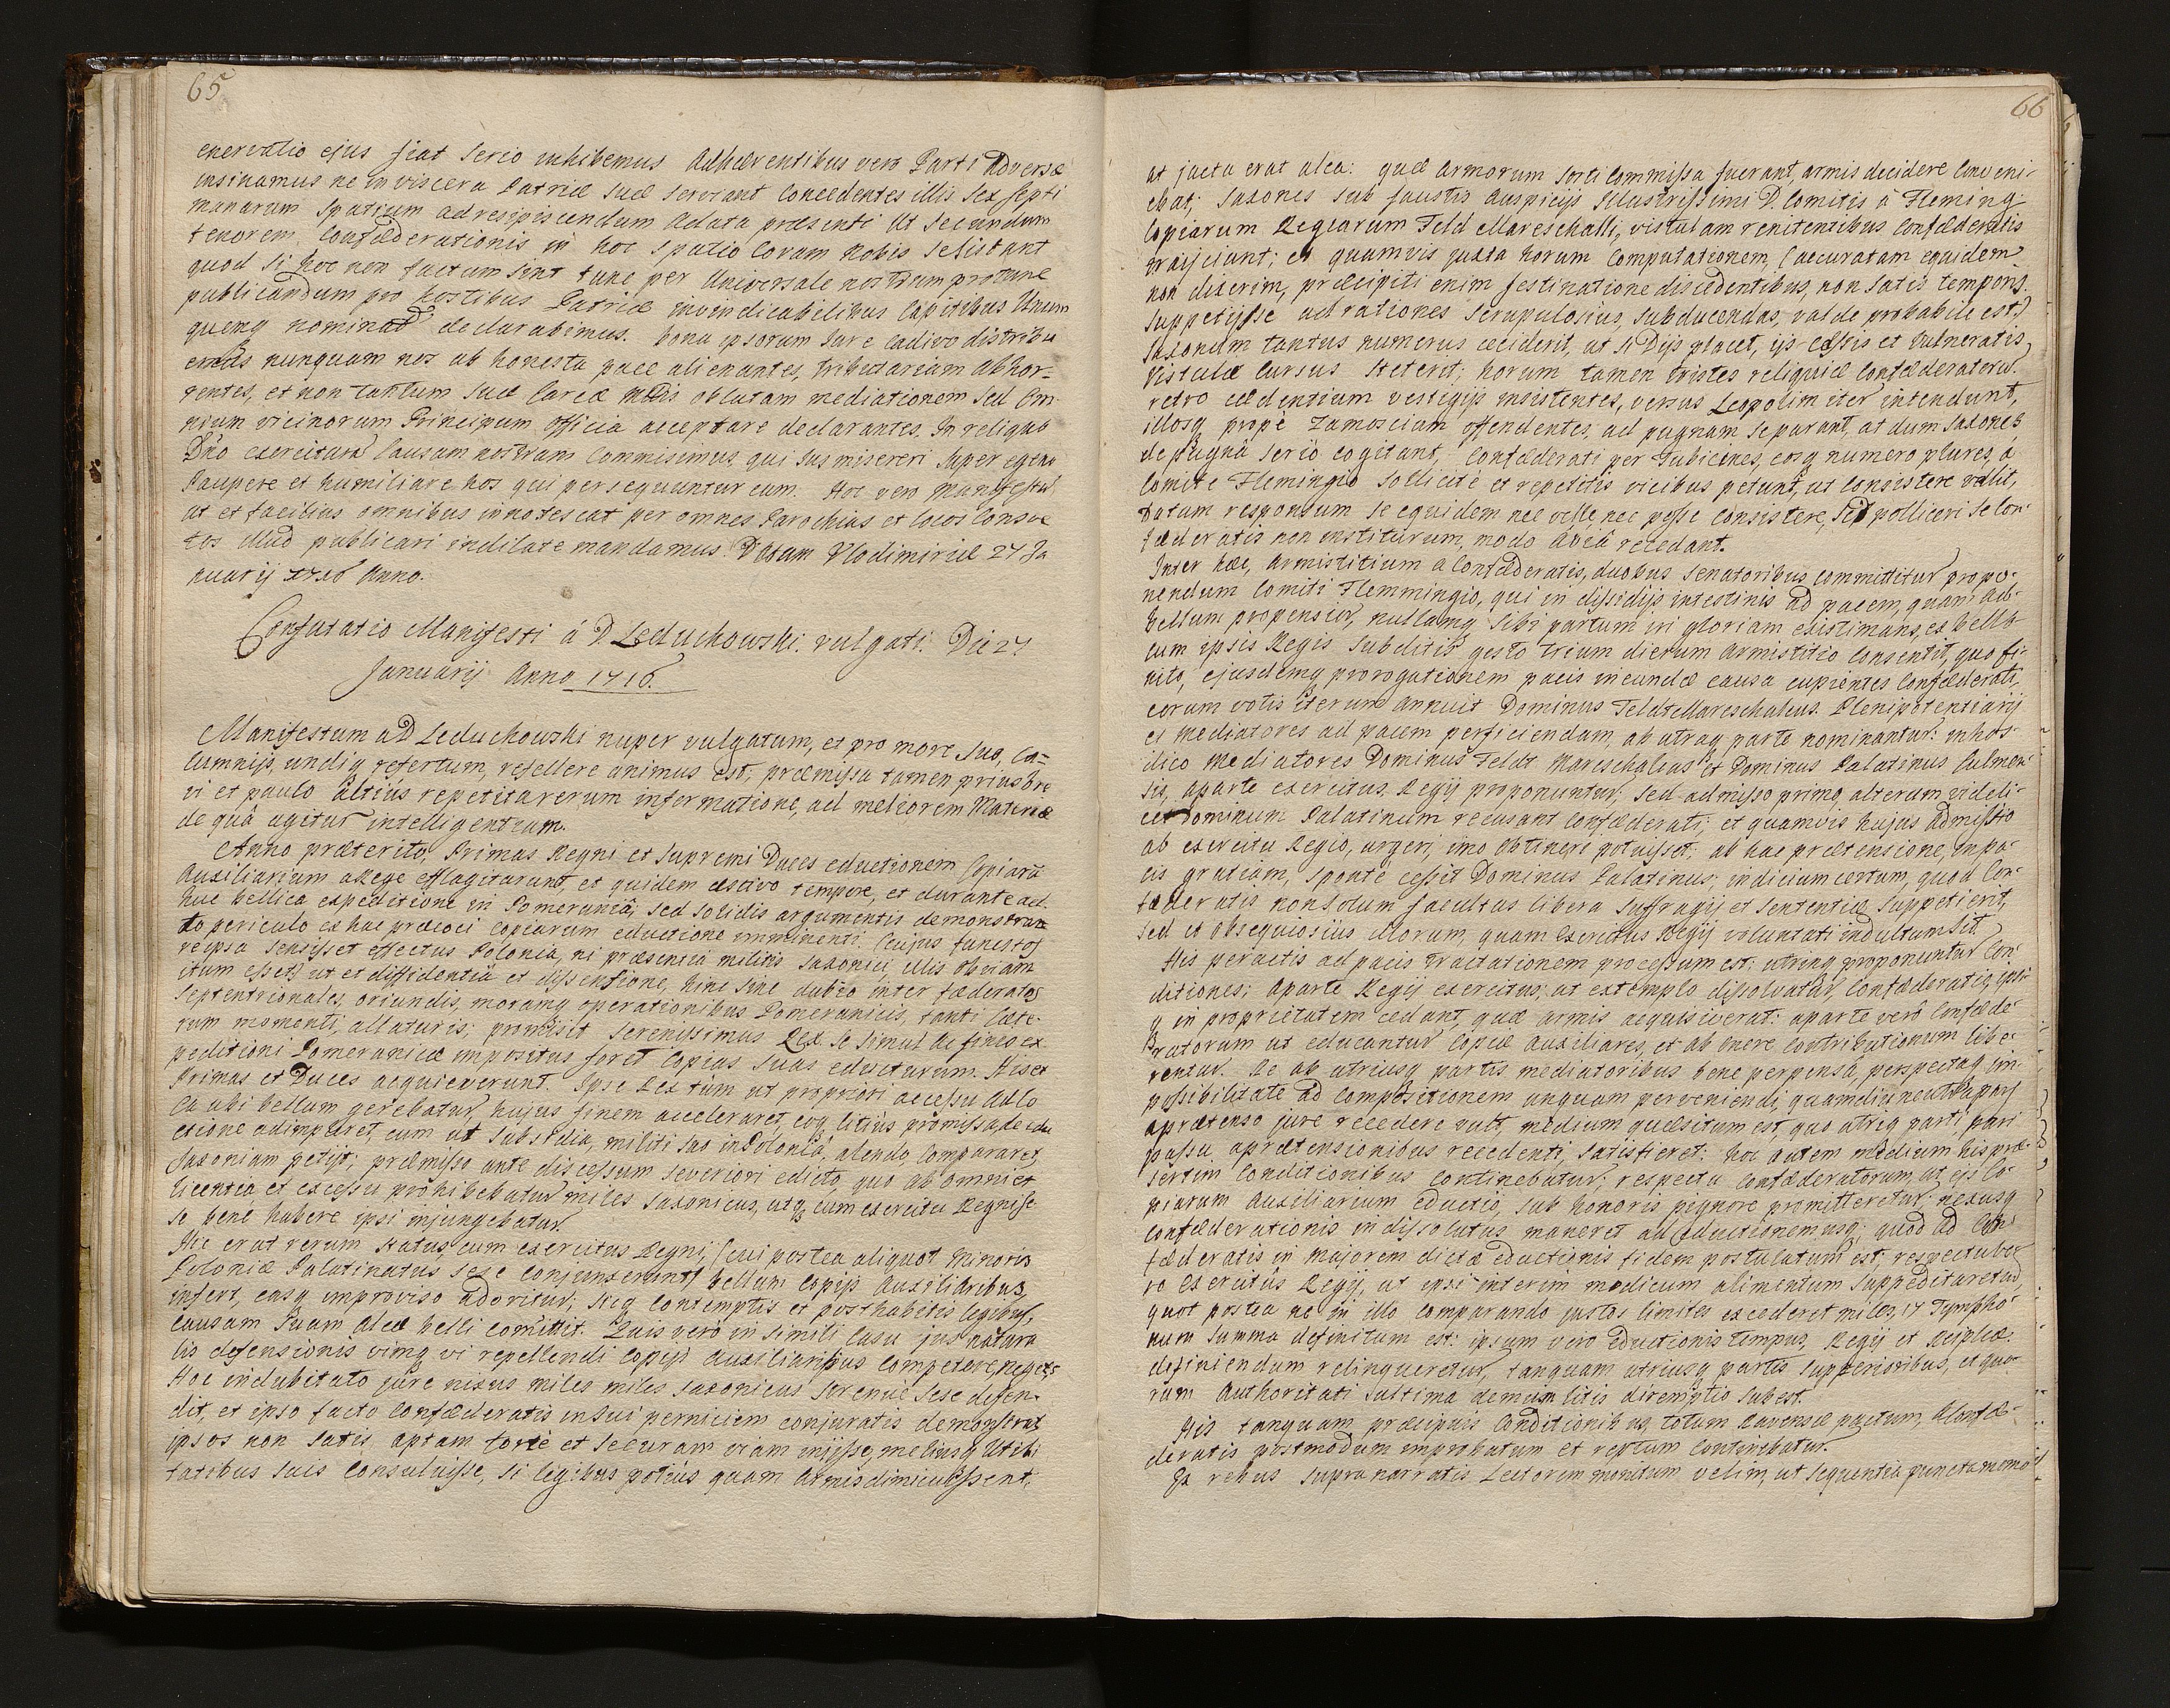 65
enervatio ejus fiat serio inhibemus Adhærentibus vero Parti Adversæ
insinamus ne in viscera Patriæ suæ serviant Concedentes illis sex septi
manarum spatium ad resipiscendum a data præsenti Ut secundum
tenorem Confæderationis in hoc spatio Coram Nobis se sistant
quod si hoc non factum sint tunc per Universale nostrum protunc
publicandum pro hostibus Patriæ invindicabilibus Capitibus Unum
quemq nominat declarabimus. bona ipsorum Jure Cadivo distribu
emus nunquam nos ab honesta pace alienantes, tributariam Abhor=
rentes, et non tantum suæ Caræ Mtis oblatam mediationem sed Om
nium vicinorum Principum Officia acceptare declarantes. In reliquo
Dno exercituum Causam nostram Commisimus, qui Jus misereri super egeno
Paupere et humiliare hos qui persequuntur eum. Hoc vero Manifestum
ut et facilius omnibus innotescat per omnes Parochias et locos Consve
tos illud publicari indilate mandamus. Datum Vlodimiriæ 27 Ja
nuarij 1716 Anno.
Confutatio Manifesti á D Leduchowski. vulgati. Die 27
Januarij Anno 1716.
Manifestum a D Leduchowski nuper vulgatum, et pro more suo, Ca=
lumnijs undiq refertum, refellere animus est; præmissa tamen prius bre
vi et paulo altiús repetita rerum informatione, ad meliorem Materiæ
de quâ agitur intelligentiam.
Anno præterito, Primas Regni et supremi Duces eductionem Copiarũ
Auxiliarium a Rege efflagitarunt, et quidem æstivo tempore, et durante ad
huc bellica expeditione in Pomeraniâ; sed solidis argumentis demonstra
to periculo ex hac præcoci copiarum eductione imminenti. (cujus funestos
reipsa sensisset effectus Polonia, ni præsentiâ militis saxonici, illis obviam
itum esset) ut et diffidentiâ et dissensione, hinc sine dubio inter fæderatos
septentrionales, oriundis, moramq operationibus Pomeranicis, tanti Cæte
rum momenti, allaturis; promisit Serenissimus Rex. se simul ac finis ex
peditioni Pomeranicæ impositus foret Copias suas educturum. His et
Primas et Duces acquieverunt. Ipse Rex tùm ut propriori accessu ad lo
ca ubi bellum gerebatur, hujus finem acceleraret, eoq citiùs promissa, de edu
ctione adimpleret, cum ut subsidia, militi suo in Poloniâ, alendo, Compararet,
saxoniam petijt; præmisso ante discessum severiori edicto, quo ab omni et
licentia et excessu prohibebatur miles saxonicus, utq cum exercitu Regni se
se bene habere ipsi injungebatur.
Hic erat rerum status, cum exercitus Regni, (cui postea aliquot Minoris
Poloniæ Palatinatus sese conjunxerunt) bellum Copijs Auxiliaribus,
infert, easq improviso adoritur; sicq Contemptis et posthabitis legibus,
causam suam Aleæ belli com̃ittit. Quis verò in simili Casu jus natura
lis defensionis vimq vi repellendi Copijs Auxiliaribus Competere, neget;
Hoc indubitato jùre nixus miles miles saxonicus strenuè sese defen=
dit, et ipso facto Confæderatis in sui perniciem conjuratis demonstrat,
ipsos non satis aptam forte et securam viam inijsse, meliusq Utili
tatibus suis Consuluisse, si legibus potiùs quam Armis dimicassent;
66
at jacta erat alea: quæ Armorum sorti Commissa fuerant, armis decidere Conveni-
ebat; saxones sub faustis Auspicijs Illustrissimi D. Comitis á Fleming
Copiarum Regiarum Feld Mareschalli, vistulam renitentibus Confæderatis
trajiciunt; et quamvis juxta horum Computationem, (accuratam equidem
non dixerim, præcipiti enim festinatione discedentibus, non satis temporis
suppetijsse ad rationes scrupulosius, subducendas, valde probabile est)
saxonum tantus numerus ceciderit, ut si Dijs placet, ijs cæssis et Vulneratis
Vistulæ Cursus steterit; horum tamen tristes reliquiæ Confæderatorũ
retro cædentium vestigijs insistentes, versus Leopolim iter intendunt,
illosq propè Zamosciam offendentes, ad pugnam se parant, at dum saxones
de pugnâ seriò cogitant, Confæderati per Tubicines, eosq numero plures, à
Comite Flemingio sollicite et repetitis vicibus petunt, ut Consistere velit,
Datum responsum se equidem nec velle, nec posse Consistere, sed polliceri se Con-
fæderatis non institurum, modo Aveâ recedant.
Inter hæc, Armistitium a Confæderatis, duobus senatoribus committitur propo-
nendum Comiti Flemmingio, qui in dissidijs intestinis ad pacem, quam ad-
bellum propensior, nullamq sibi partum iri gloriam existimans, ex bello
cum ipsis Regis subditis gesto trium dierum Armistitio Consentit, quo fi-
nito, ejusdemq prorogationem pacis ineundæ causa cupientes Confæderati,
eorum votis iterum Annuit Dominus Feldt Mareschalcus. Plenipotentiarij
et Mediatores ad pacem perficiendam, ab utraq parte nominantur: in hos-
dico Mediatores Dominus Feldt Mareschalcus et Dominus Palatinus Culmen-
sis, á parte exercitus Regij proponuntur; sed admisso primo, alterum videli-
cet Dominum Palatinum recusant Confæderati; et quamvis hujus admissio
ab exercitu Regio, urgeri, imo obtineri potuisset; ab hac prætensione, in pa-
cis gratiam, sponte cessit Dominus Palatinus; indicium certum, quod Con-
fæderatis non solum facultas libera suffragij et sententiæ suppetierit,
sed et obsequiosius illorum, quam Exercitus Regij voluntati indultum sit.
His peractis ad pacis tractationem processum est; utrinq proponuntur Con-
ditiones; á parte Regij exercitus, ut extemplo dissolvatur, Confæderatio, ipsi-
q in proprietatem cedant, quæ armis acquisiverat: á parte verò Confæde-
ratorum ut educantur Copiæ Auxiliares, et ab onere Contributionum libe-
rentur. Re ab utriusq partis mediatoribus bene perpensa, perspectaq im-
possibilitate ad compositionem unquam perveniendi, quamdiu neutra pars
á prætenso jure recedere vult, medium quæsitum est, quo utriq parti, pari
passu, á prætensionibus recedenti, satisfieret: hoc autem medium his præ-
sertim Conditionibus Continebatur; respectu Confæderatorum, ut ejs Co-
piarum Auxiliarium eductio, sub honoris pignore promitteretur; nexusq
Confæderationis indissolutus maneret ad eductionem usq; quod ad Con-
fæderatis in majorem dictæ eductionis fidem postulatum est; respectu ve-
ro Exercitûs Regij, ut ipsi interim modicum alimentum suppeditaretur,
quot postea ne in illo comparando justos limites excederet miles, 17 Tympho-
num summa definitum est: ipsum vero eductionis tempus, Regij et Reiplicæ.
definiendum relinqueretur, tanquam utriusq partis supperioribus, et quo-
rum Authoritati sultima demum litis diremptio subest.
His tanquam præcipuis Conditionibus, totum Ravense pactum, á Confæ-
deratis postmodum improbatum et reptum Continebatur.
Ex rebus supra narratis Lectorem monitum velim, ut sequentia puncta memo